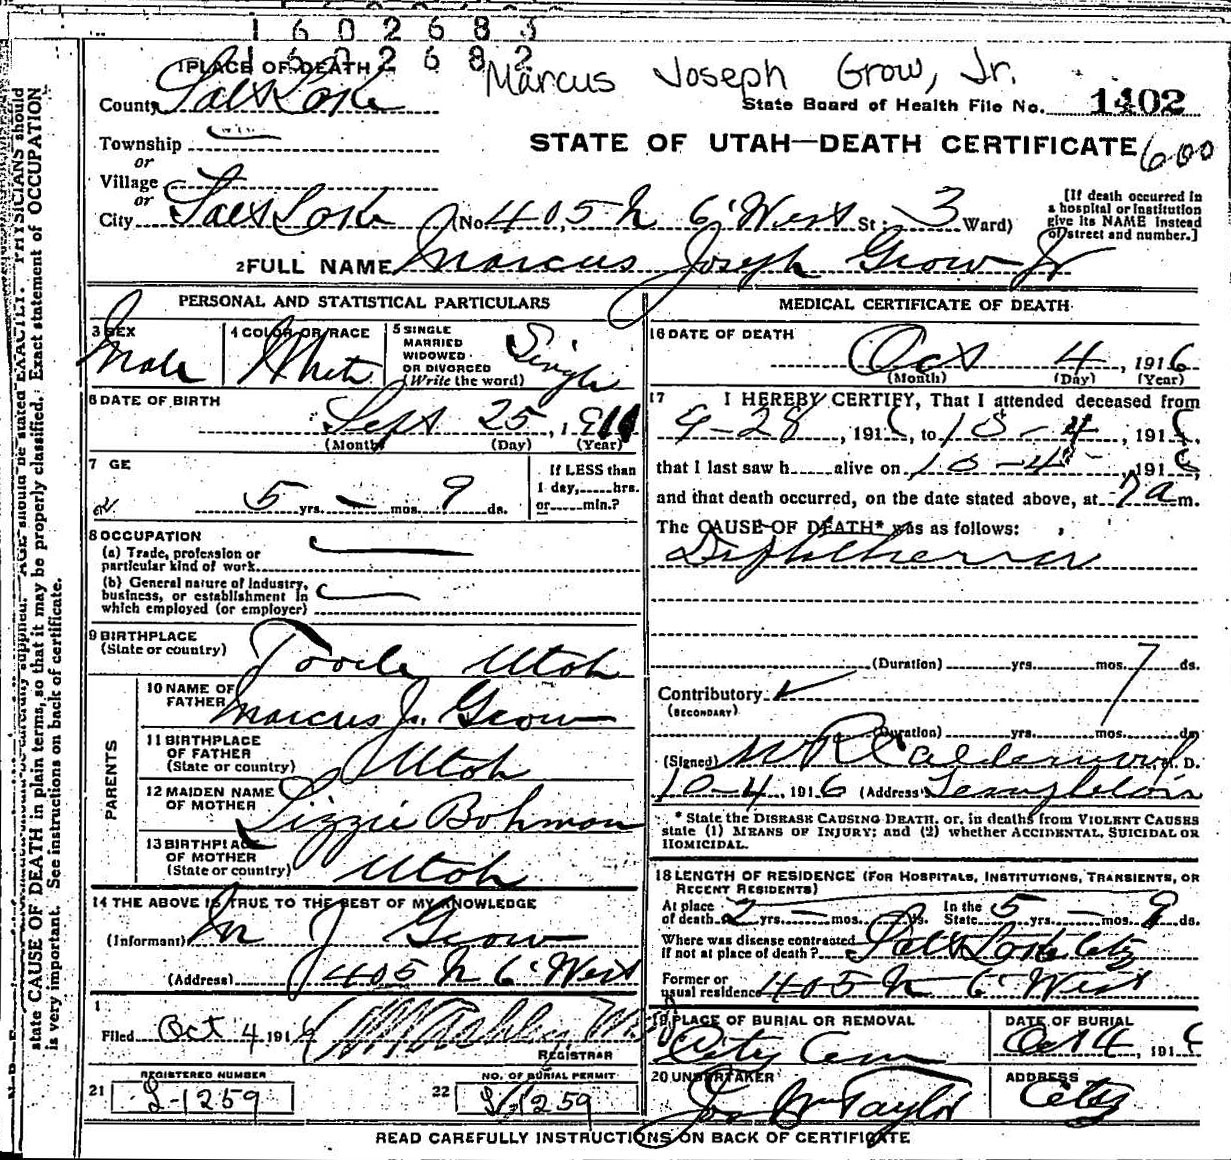 1602683
1602682
Marcus Joseph Grow, Jr.
1 PLACE OF DEATH
County Salt Lake
State Board of Health File No. 1402
Township
or
STATE OF UTAH—DEATH CERTIFICATE 600
Village
or
City Salt Lake (No. 405 N 6' West St; 3 Ward)
[If death occurred in a hospital or institution give its NAME instead of street and number.]
2 FULL NAME Marcus Joseph Grow Jr
PERSONAL AND STATISTICAL PARTICULARS
3 SEX Male
4 COLOR OR RACE White
5 SINGLE MARRIED WIDOWED OR DIVORCED (Write the word) Single
6 DATE OF BIRTH
Sept 25, 1911
(Month) (Day) (Year)
7 GE
5 yrs. — mos. 9 ds.
If LESS than 1 day, hrs. or min.?
8 OCCUPATION
(a) Trade, profession or particular kind of work
(b) General nature of Industry, business, or establishment in which employed (or employer)
9 BIRTHPLACE
(State or country) Tooele Utah
PARENTS
10 NAME OF FATHER Marcus J. Grow
11 BIRTHPLACE OF FATHER (State or country) Utah
12 MAIDEN NAME OF MOTHER Lizzie Bohman
13 BIRTHPLACE OF MOTHER (State or country) Utah
14 THE ABOVE IS TRUE TO THE BEST OF MY KNOWLEDGE
(Informant) M J Grow
(Address) 405 N 6' West
Filed Oct 4 1916
REGISTRAR
REGISTERED NUMBER
21 L-1259
NO. OF BURIAL PERMIT
22 1259
MEDICAL CERTIFICATE OF DEATH
16 DATE OF DEATH
Oct 4, 1916
(Month) (Day) (Year)
17 I HEREBY CERTIFY, That I attended deceased from
9-28, 1916, to 10-4, 1916,
that I last saw h alive on 10-4, 1916
and that death occurred, on the date stated above, at 7 a m.
The CAUSE OF DEATH* was as follows:
Diphtheria
(Duration) yrs. mos. 7 ds.
Contributory
(SECONDARY)
(Duration) yrs. mos. ds.
(Signed) W R Calderwood M. D.
10-4, 1916 (Address) Templeton
* State the DISEASE CAUSING DEATH, or, in deaths from VIOLENT CAUSES state (1) MEANS OF INJURY; and (2) whether ACCIDENTAL, SUICIDAL OR HOMICIDAL.
18 LENGTH OF RESIDENCE (FOR HOSPITALS, INSTITUTIONS, TRANSIENTS, OR RECENT RESIDENTS)
At place of death 2 yrs. — mos. ds. In the State 5 yrs. — mos. 9 ds.
Where was disease contracted If not at place of death? Salt Lake City
Former or usual residence 405 N 6' West
19 PLACE OF BURIAL OR REMOVAL
City Cem
DATE OF BURIAL
Oct 4, 1916
20 UNDERTAKER
Jos Wm Taylor
ADDRESS
City
READ CAREFULLY INSTRUCTIONS ON BACK OF CERTIFICATE
AGE should be stated EXACTLY. PHYSICIANS should
state CAUSE OF DEATH in plain terms, so that it may be properly classified. Exact statement of OCCUPATION
is very important. See instructions on back of certificate.